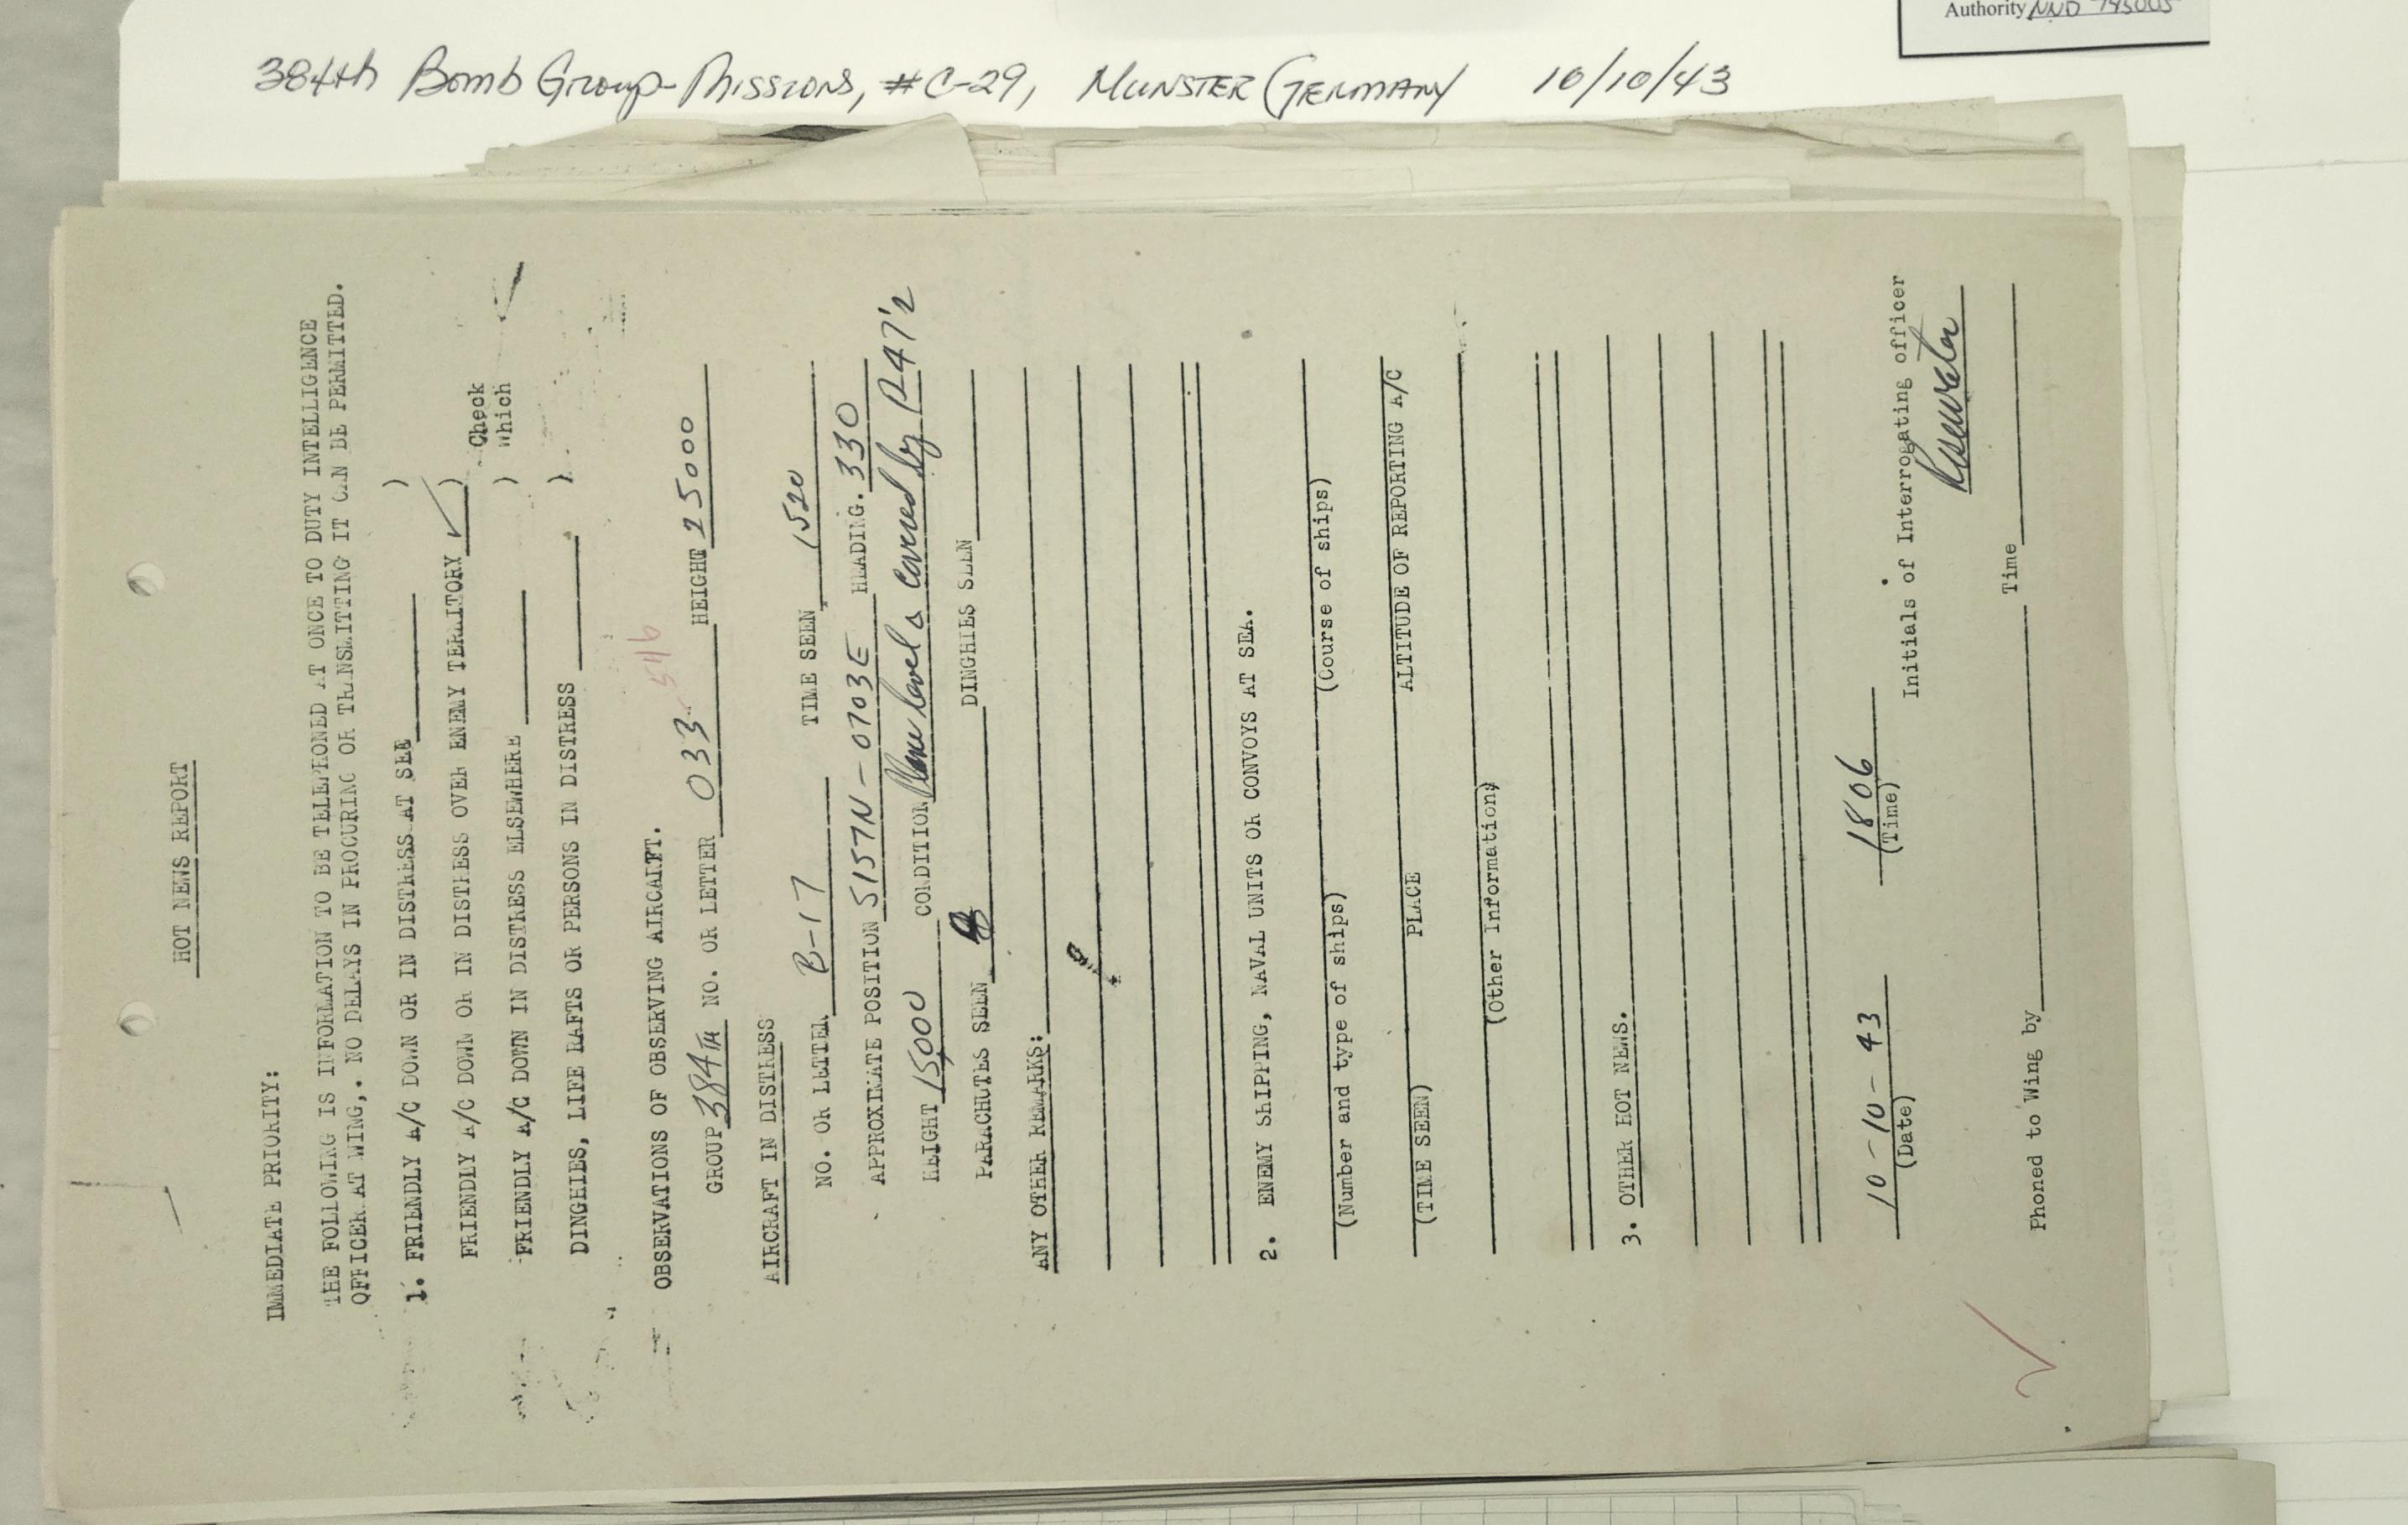 Authority NND 745005
384th Bomb Group-Missions, #C-29, MUNSTER GERMANY 10/10/43
HOT NEWS REPORT
IMMEDIATE PRIORITY:
THE FOLLOWING IS INFORMATION TO BE TELEPHONED AT ONCE TO DUTY INTELLIGENCE
OFFICER AT WING,. NO DELAYS IN PROCURING OR TRANSMITTING IT CAN BE PERMITTED.
1. FRIENDLY A/C DOWN OR IN DISTRESS AT SEA )
FRIENDLY A/C DOWN OR IN DISTRESS OVER ENEMY TERRITORY ✓ ) Check
FRIENDLY A/C DOWN IN DISTRESS ELSEWHERE ) which
DINGHIES, LIFE RAFTS OR PERSONS IN DISTRESS )
OBSERVATIONS OF OBSERVING AIRCRAFT. 546
GROUP 384TH NO. OR LETTER 033 HEIGHT 25000
AIRCRAFT IN DISTRESS
NO. OR LETTER B-17 TIME SEEN 1520
APPROXIMATE POSITION 5157N-0703E HEADING. 330
HEIGHT 15000 CONDITION Plane level & covered by P47's
PARACHUTES SEEN DINGHIES SEEN
ANY OTHER REMARKS:
2. ENEMY SHIPPING, NAVAL UNITS OR CONVOYS AT SEA.
(Number and type of ships) (Course of ships)
(TIME SEEN) PLACE ALTITUDE OF REPORTING A/C
(Other Information)
3. OTHER HOT NEWS.
10-10-43 1806
(Date) (Time) Initials of Interrogating officer
Rosewater
Phoned to Wing by Time